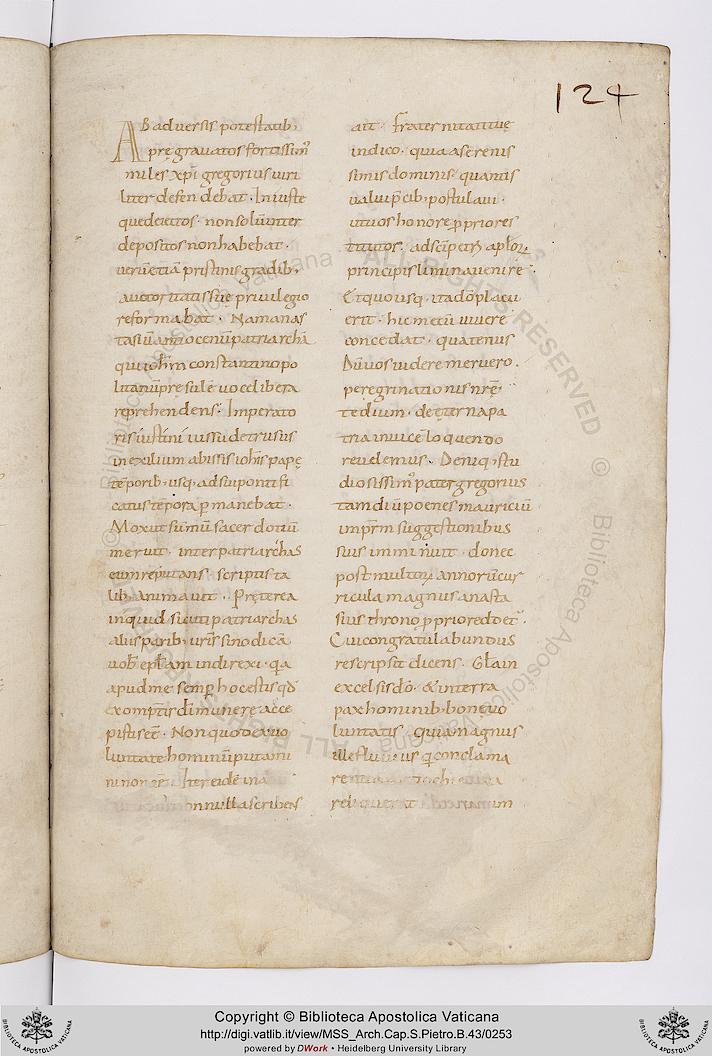 124
AB adversis potestatib;
pręgravatos fortissim̄
miles xp̄i gregorius viri
liter defendebat. Iniuste
que deiectos. non solū inter
depositos non habebat.
verū etiā pristinis gradib;
auctoritatis suę privilegio
reformabat. Nam anas
tasiū antiocenū patriarchā
qui ioh̄m constantinopo
litanū presulē voce libera
reprehendens. Imperato
ris iustini iussu detrusus
in exilium ab issis ioh̄is papę
tēporib; usq; ad sui pontifi
catus tēpora p̄manebat.
Mox ut sūmū sacerdotiū
meruit. inter patriarchas
eum reputans. scriptis ta
lib; animavit. Pręterea
inquid sicuti patriarchas
aliis parib; vr̄is sinodicā
vob̄ ep̄lam indirexi. q̄a
apud me semp̄ hoc estis qd̄
exomptis dī munere acce
pistis eē. Non quod ex vo
luntate hominū putami
ni non eē. Iter eidē ina
nonnulla scribens
ait. Fraternitati tuę
indico. quia a serenis
simis dominis. quantis
valui p̄cib; postulavi.
ut vos honore p̄priores
titutos. ad sc̄i petri aplōr
principis limina venire.
Et quousq; ita dō placu
erit. hic mecū vivere
concedat. quatenus
Dū vos videre meruero.
peregrinationis nr̄ę
tedium. de ęterna pa
tria invicē loquendo
revelemus. Deniq; stu
diosissim̄ pater gregorius
tamdiū poenes mauriciū
imprm̄ suggestionibus
suis imminuit. donec
post multor annorū cur
ricula magnus anasta
sius throno p̄prio redd&̄.
Cui congratulabundus
rescripsit dicens. Gl̄a in
excelsis dō. & in terra
pax hominib; bonę vo
luntatis. Quia magnus
ille fluvius q̄ conclama
reliquerat
Copyright © Biblioteca Apostolica Vaticana
http://digi.vatlib.it/view/MSS_Arch.Cap.S.Pietro.B.43/0253
powered by DWork • Heidelberg University Library